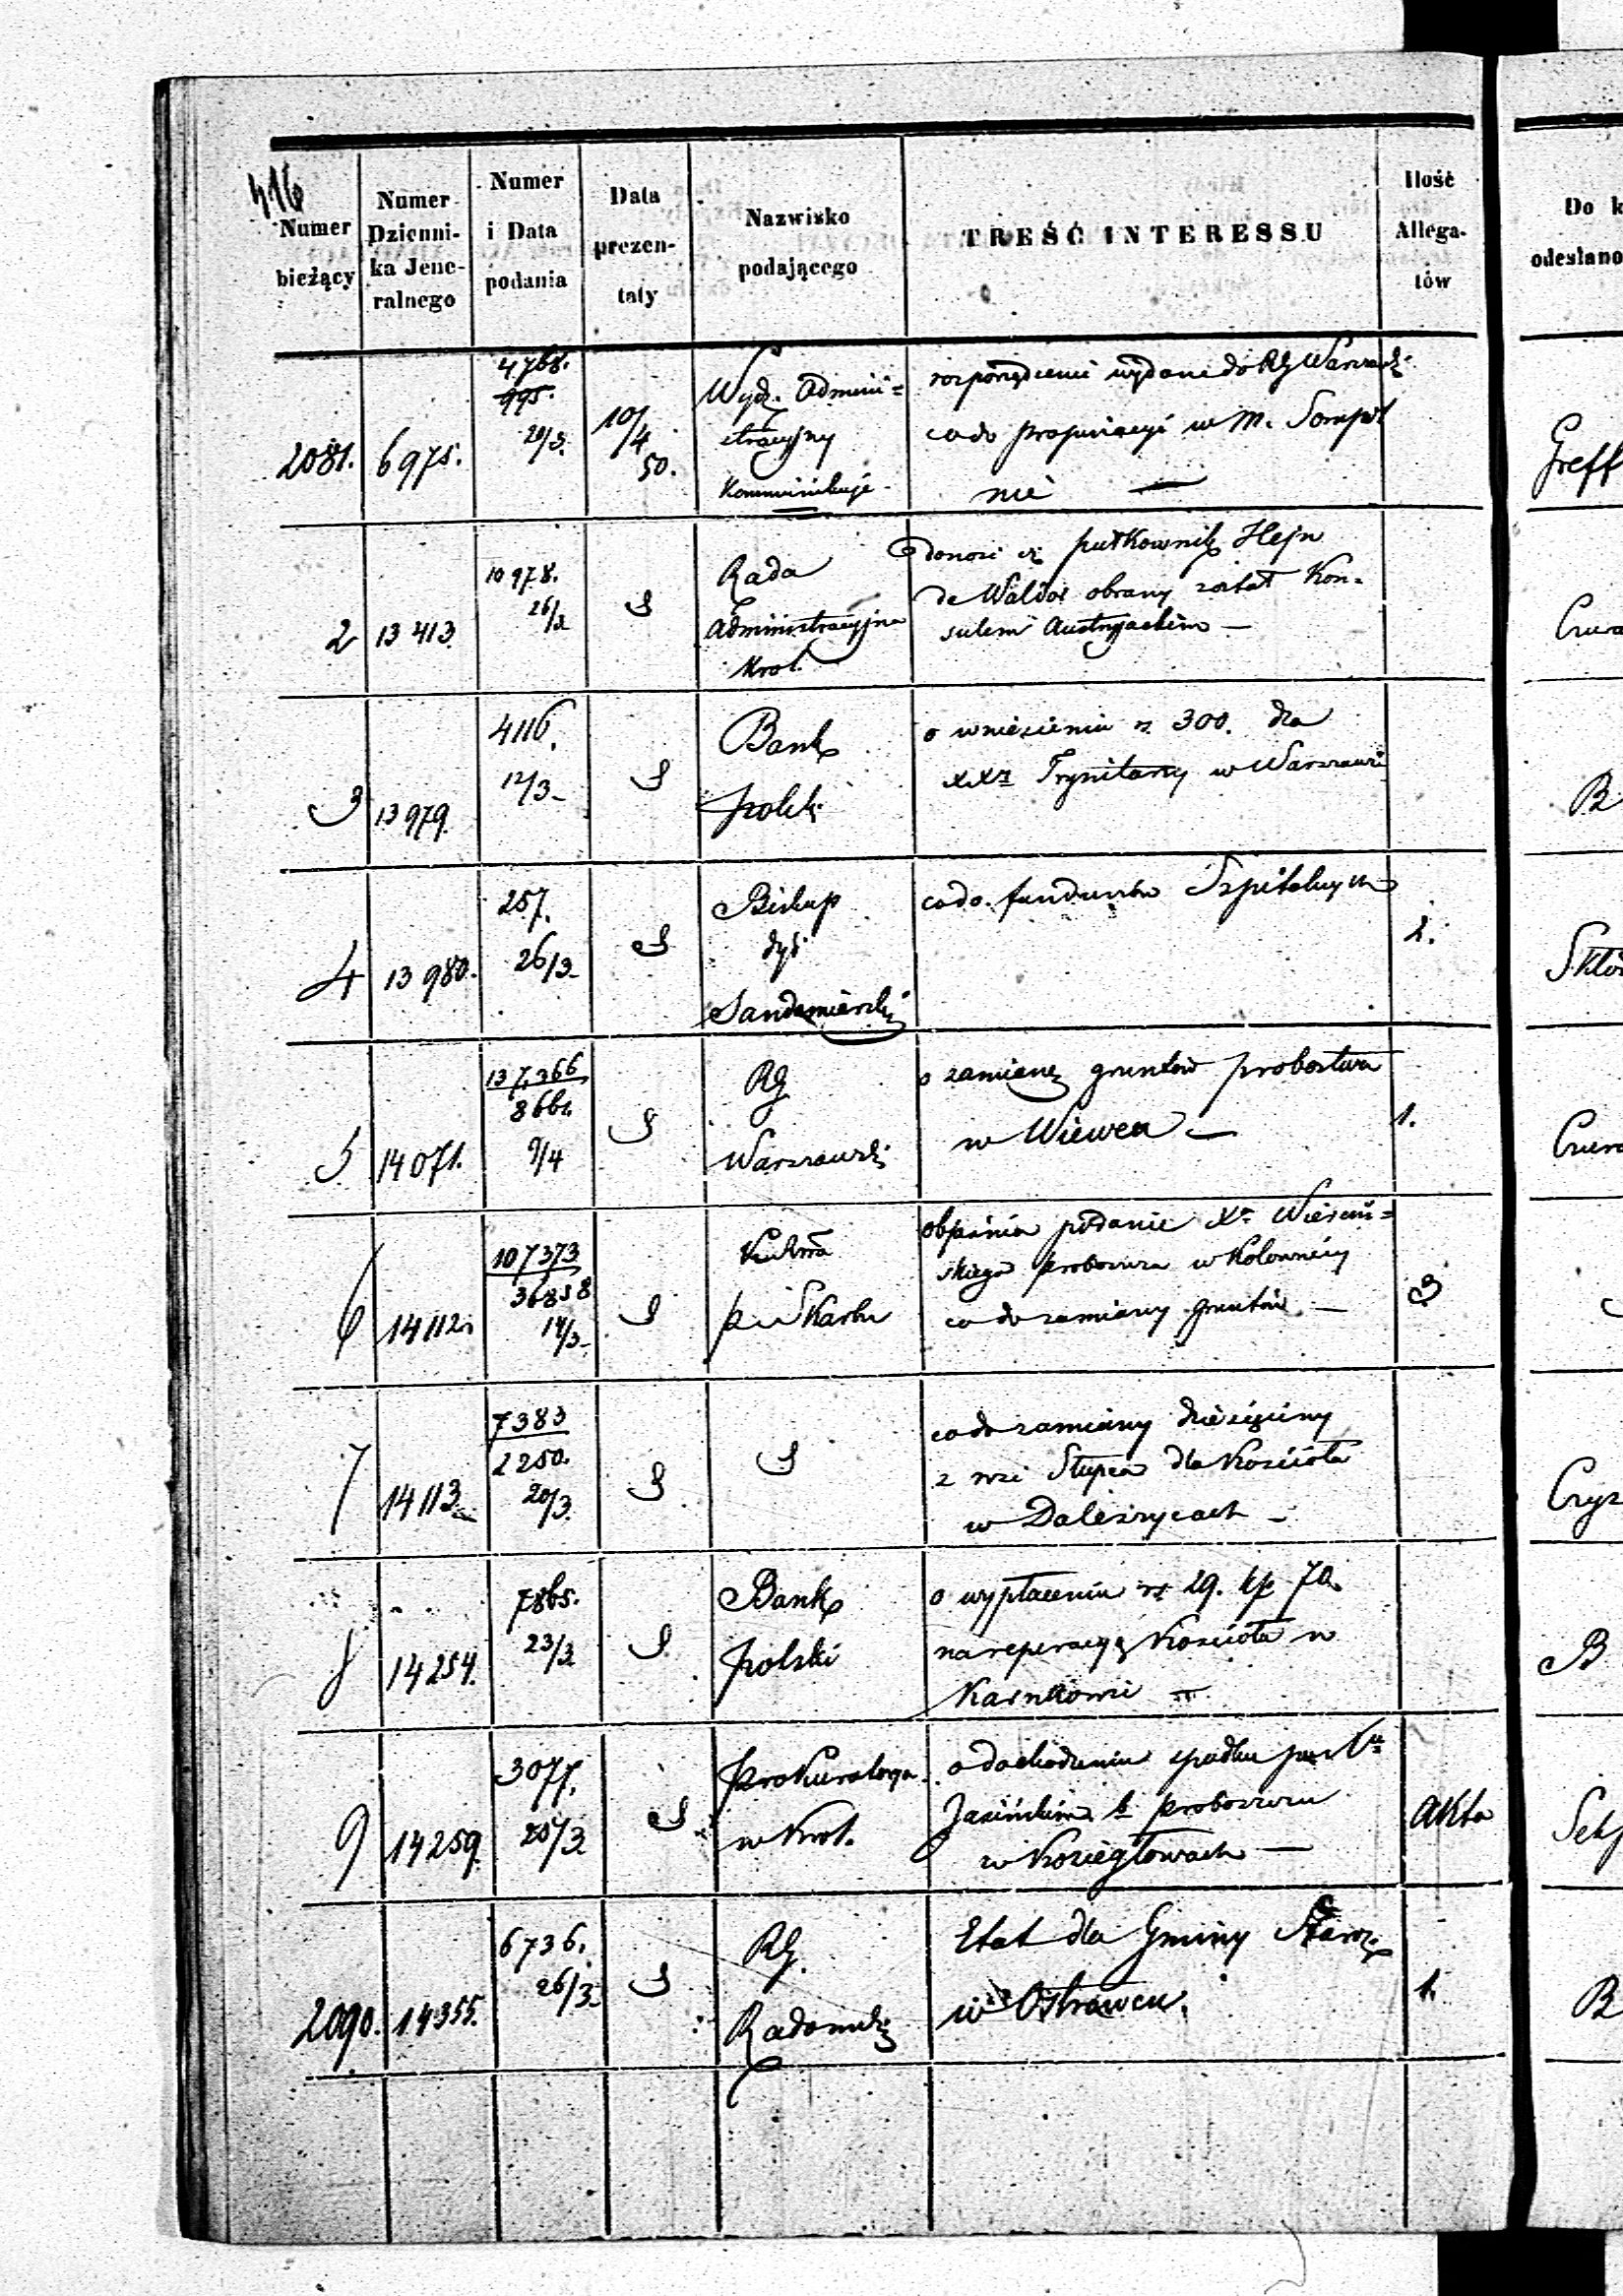 416
Numer bieżący
Numer Dzienni- ka Jene- ralnego
Numer i Data podania
Data prezen- taty
Nazwisko podającego
TREŚĆ INTERESSU
Ilość Allega- tów
Do k
odesłano
2081.
6975.
4768.
995.
20/3.
10/4 50.
Wydz. Admini=
stracyjny
Kommunikuje
rozporządzenie wydane do RG Warszaws:
co do propinacyi w m. Sompol
nie —
Greff
2
13413.
10978.
26/3
S
Rada
Administracyjna
Krol.
donosi iż pułkownik Hejn
de Waldor obrany został Kon=
sulem Austryackim —
3
13979.
4116.
12/3
S
Bank
polski
o wniesieniu rs. 300. dla
XXzy Trynitarzy w Warszawie
B
4
13980.
257.
26/3
S
Biskup
dyi
Sandomierski
co do funduszów Szpitalnych
2.
5
14071.
137,366
8661.
9/4
S
RG
Warszawski
o zamianę gruntów probostwa
w Wiewcu —
1.
6
14112.
107373
36858
14/3
S
p i Skarbu
objaśnia podanie Xa
skiego proboszcza w
co do zamiany gruntów —
3
7
14113.
7383
2250.
20/3.
S
S
co do zamiany dziesięciny
z wsi Słupca dla Kościoła
w Daleszycach —
8
14254.
7865.
23/3
S
Bank
polski
o wypłaceniu rs 29. kp 70.
na reperacyą Kościoła w
Karnkowie —
B
9
14259.
3077.
20/3
S
Prokuratorya
w Krol.
o dochodzeniu spadku po Xu
Jasińskim b. proboszczu
w Koziegłowach —
Akta
2090.
14355.
6736.
26/3
S
RG.
Radomski
Etat dla Gminy Staroz.
w Ostrowcu.
1.
B